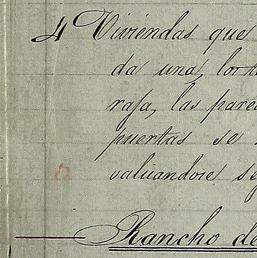 4 Viviendas que
da una, con
raja, las pared
puertas se
valuandose se
Rancho de